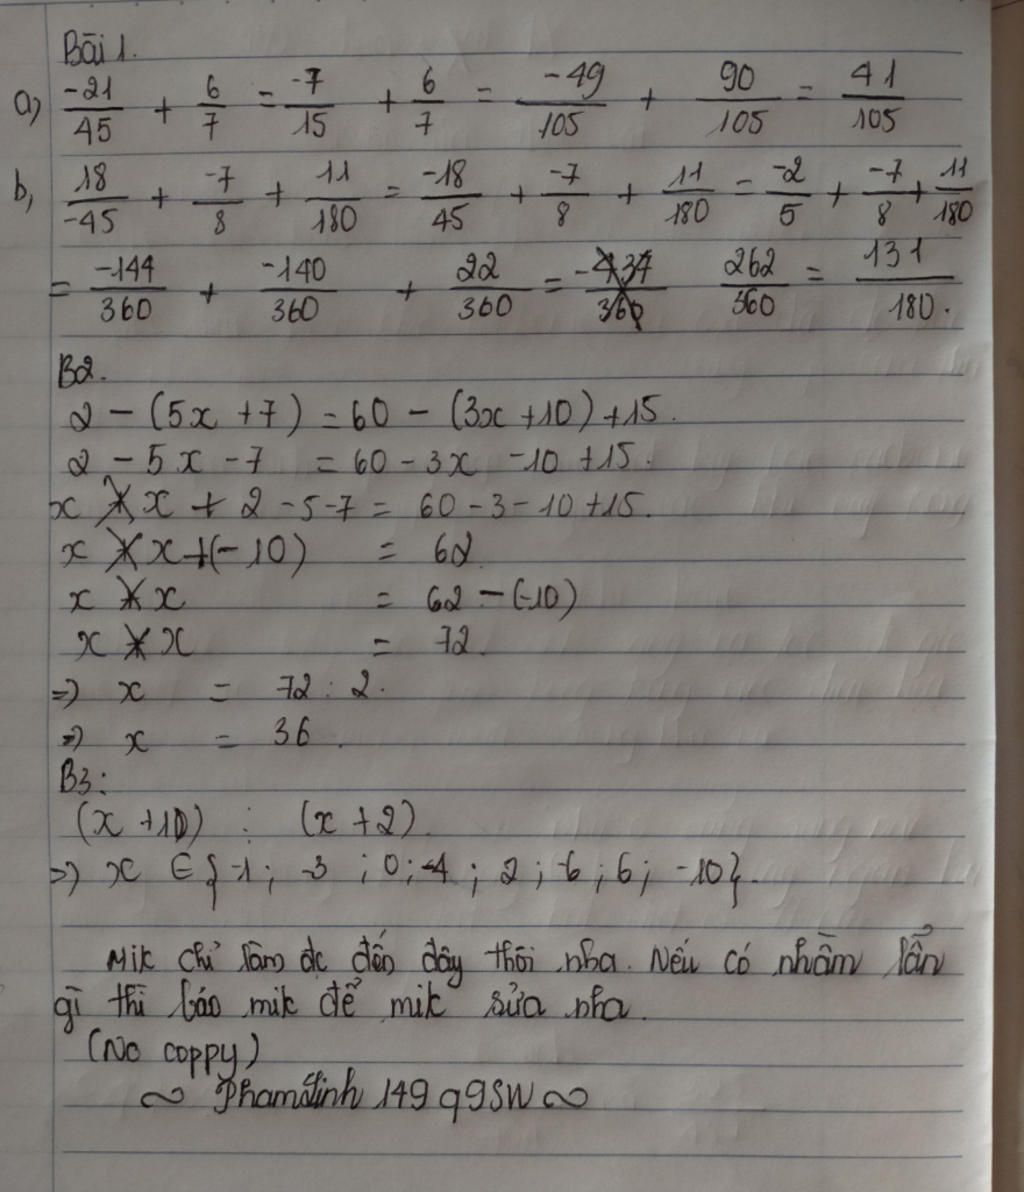 Bài 1.
a) -21/45 + 6/7 = -7/15 + 6/7 = -49/105 + 90/105 = 41/105
b, 18/-45 + -7/8 + 11/180 = -18/45 + -7/8 + 11/180 = -2/5 + -7/8 + 11/180
= -144/360 + -140/360 + 22/360 = 262/360 = 131/180.
B2.
2 - (5x + 7) = 60 - (3x + 10) + 15.
2 - 5x - 7 = 60 - 3x - 10 + 15.
x x + 2 - 5 - 7 = 60 - 3 - 10 + 15.
x x + (-10) = 62
x x = 62 - (-10)
x x = 72.
=) x = 72 : 2.
=) x = 36.
B3:
(x + 10) : (x + 2).
=) x ∈ {-1; -3; 0; -4; 2; -6; 6; -10}.
Mik chỉ làm đc đến đây thôi nha. Nếu có nhầm lẫn
gì thì báo mik để mik sửa nha.
(No coppy)
~ 149q9SW ~